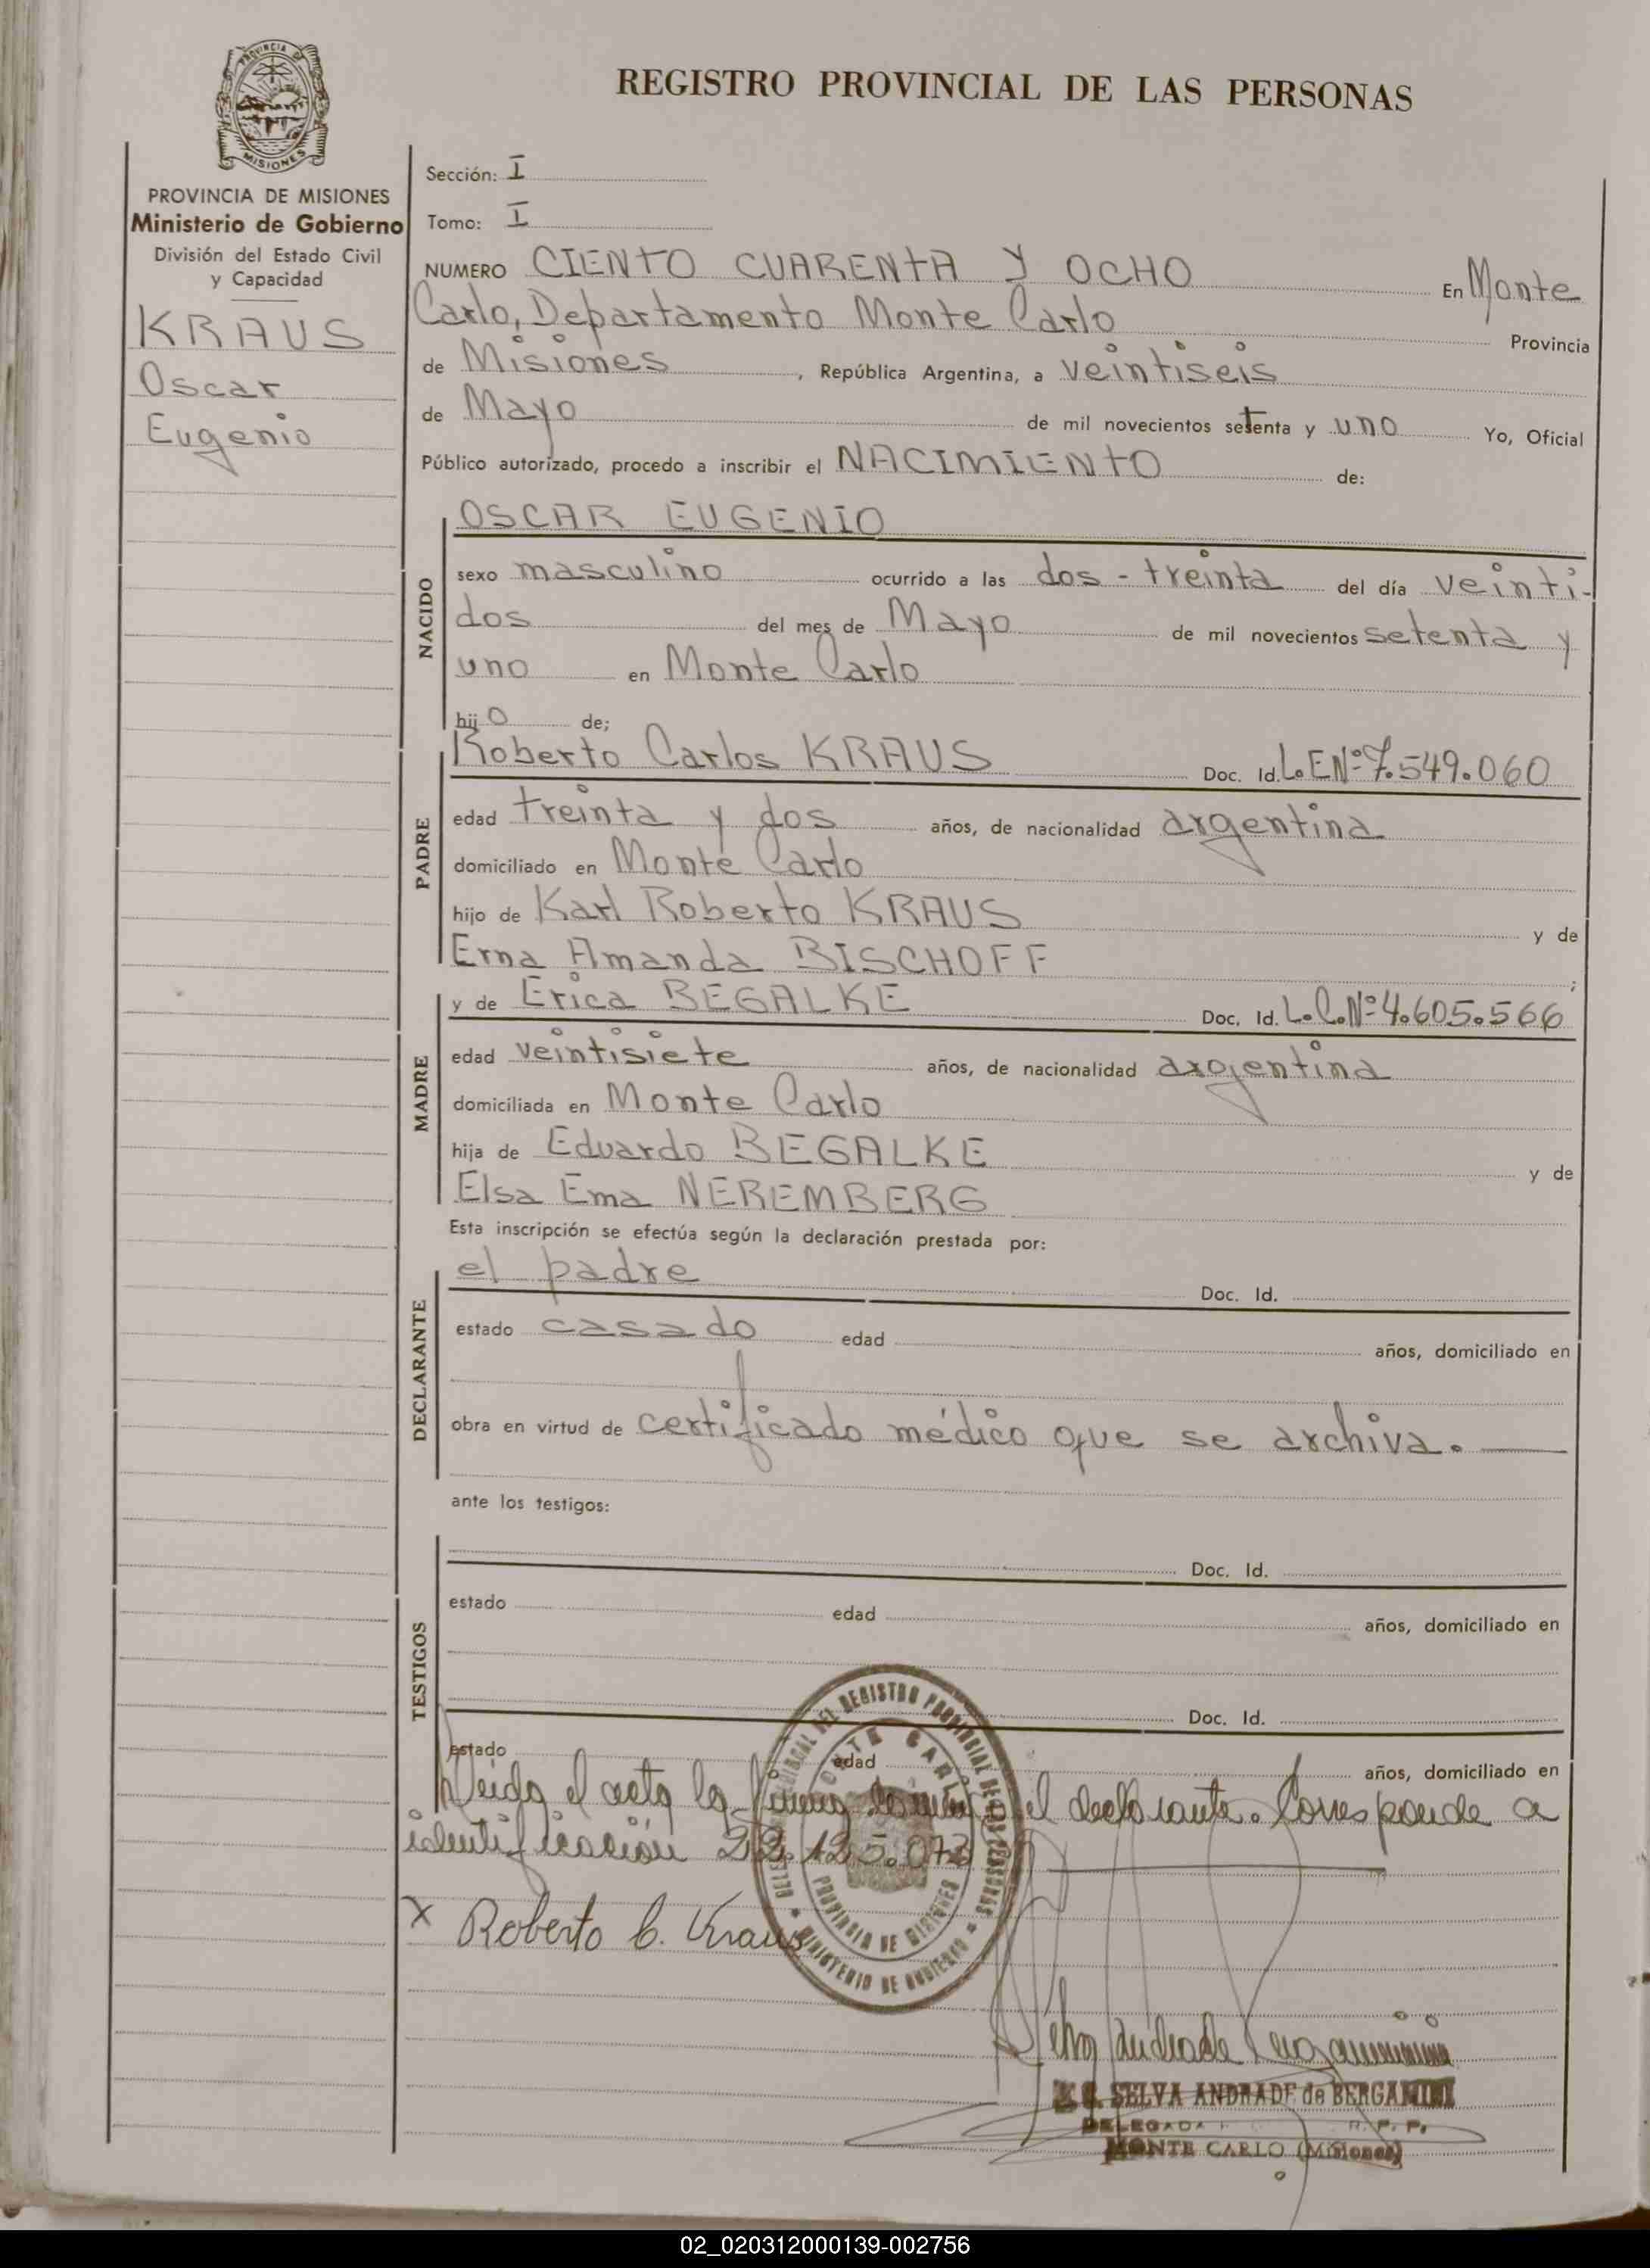 PROVINCIA DE
MISIONES
REGISTRO PROVINCIAL DE LAS PERSONAS
PROVINCIA DE MISIONES
Ministerio de Gobierno
División del Estado Civil
y Capacidad
KRAUS
Oscar
Eugenio
Sección: I
Tomo: I
NUMERO CIENTO CUARENTA Y OCHO En Monte
Carlo, Departamento Monte Carlo Provincia
de Misiones, República Argentina, a veintiseis
de Mayo de mil novecientos setenta y uno Yo, Oficial
Público autorizado, procedo a inscribir el NACIMIENTO de:
NACIDO
OSCAR EUGENIO
sexo masculino ocurrido a las dos - treinta del día veinti-
dos del mes de Mayo de mil novecientos setenta y
uno en Monte Carlo
hijo de;
PADRE
Roberto Carlos KRAUS Doc. Id. L.E Nº 7.549.060
edad treinta y dos años, de nacionalidad argentina
domiciliado en Monte Carlo
hijo de Karl Roberto KRAUS y de
Erna Amanda BISCHOFF ;
MADRE
y de Erica BEGALKE Doc. Id. L.C. Nº 4.605.566
edad veintisiete años, de nacionalidad argentina
domiciliada en Monte Carlo
hija de Eduardo BEGALKE y de
Elsa Ema NEREMBERG
Esta inscripción se efectúa según la declaración prestada por:
DECLARANTE
el padre Doc. Id.
estado casado edad años, domiciliado en
obra en virtud de certificado médico que se archiva.
ante los testigos:
TESTIGOS
Doc. Id.
estado edad años, domiciliado en
Doc. Id.
estado edad años, domiciliado en
Leida el acta la firma el declarante. Corresponde a
identificación 22.125.073
X Roberto C. Kraus
DEL REGISTRO PROVINCIAL DE LAS PERSONAS
MONTE CARLO
PROVINCIA DE MISIONES
MINISTERIO DE GOBIERNO
Selva Andrade
SELVA ANDRADE de BERGAMINI
DELEGADA R. P. P.
MONTE CARLO (Misiones)
02_020312000139-002756